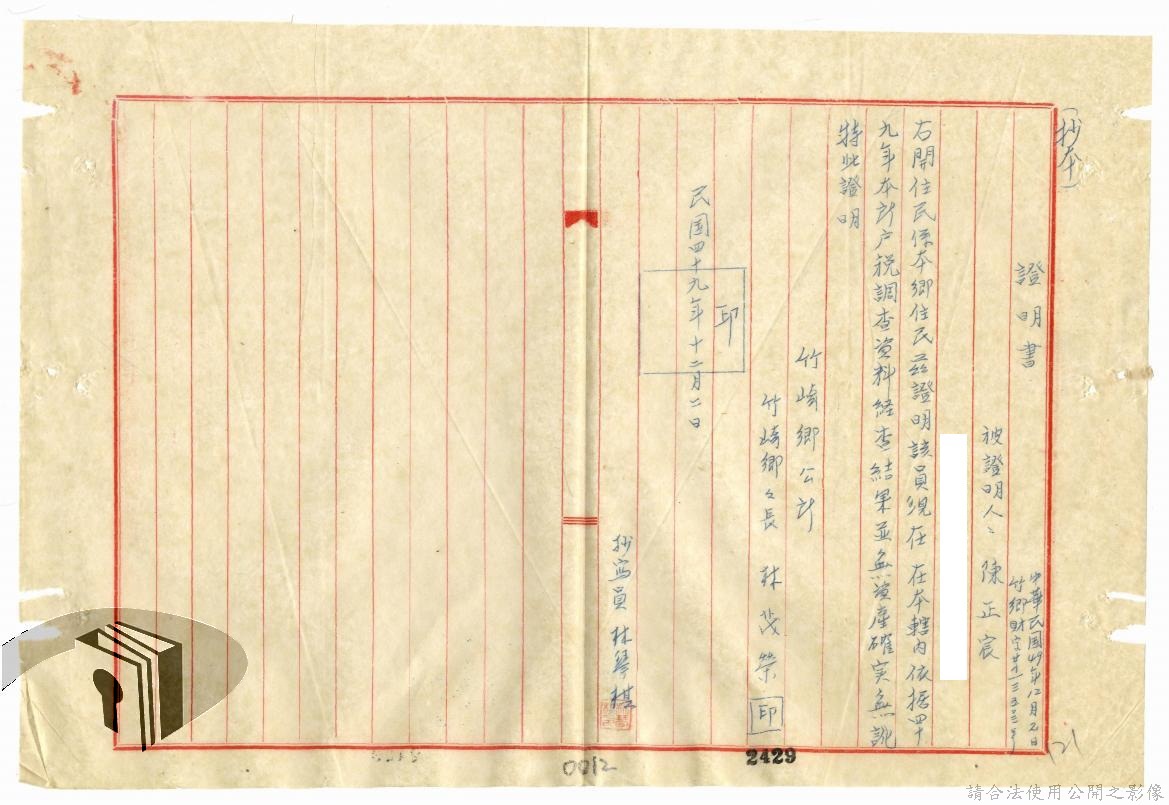 (抄本)
證明書
中華民國49年12月2日
竹鄉財字
被證明人：陳正宸
右開住民係本鄉住民茲證明該員現在 在本轄內依据四十
九年本所户税調查資料経查結果並無資產確实無訛
特此證明
竹崎鄉公所
竹崎鄉々長 林茂榮 印
印
民国四十九年十二月二日
抄寫員 林琴棋
2429
0012
21
請合法使用公開之影像